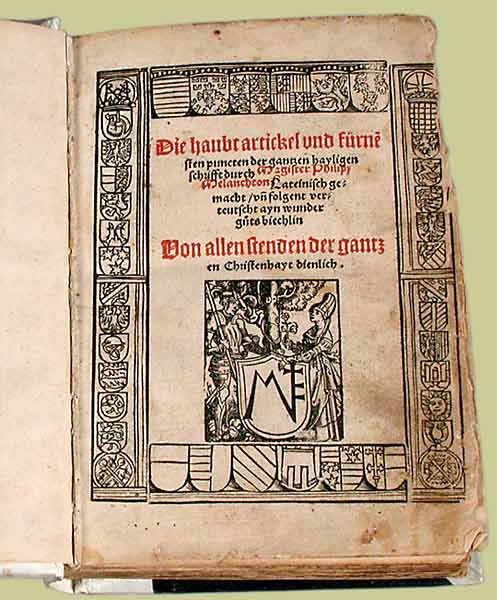 Die haubt artickel vnd fürnē
sten puncten der gantzen hayligen
schrifft durch Magister Philipp
Melanchton Lateinisch ge-
macht / vn̄ folgent ver-
teutscht ayn wunder
gůts biechlin
Von allen stenden der gantz
en Christenhayt dienlich.